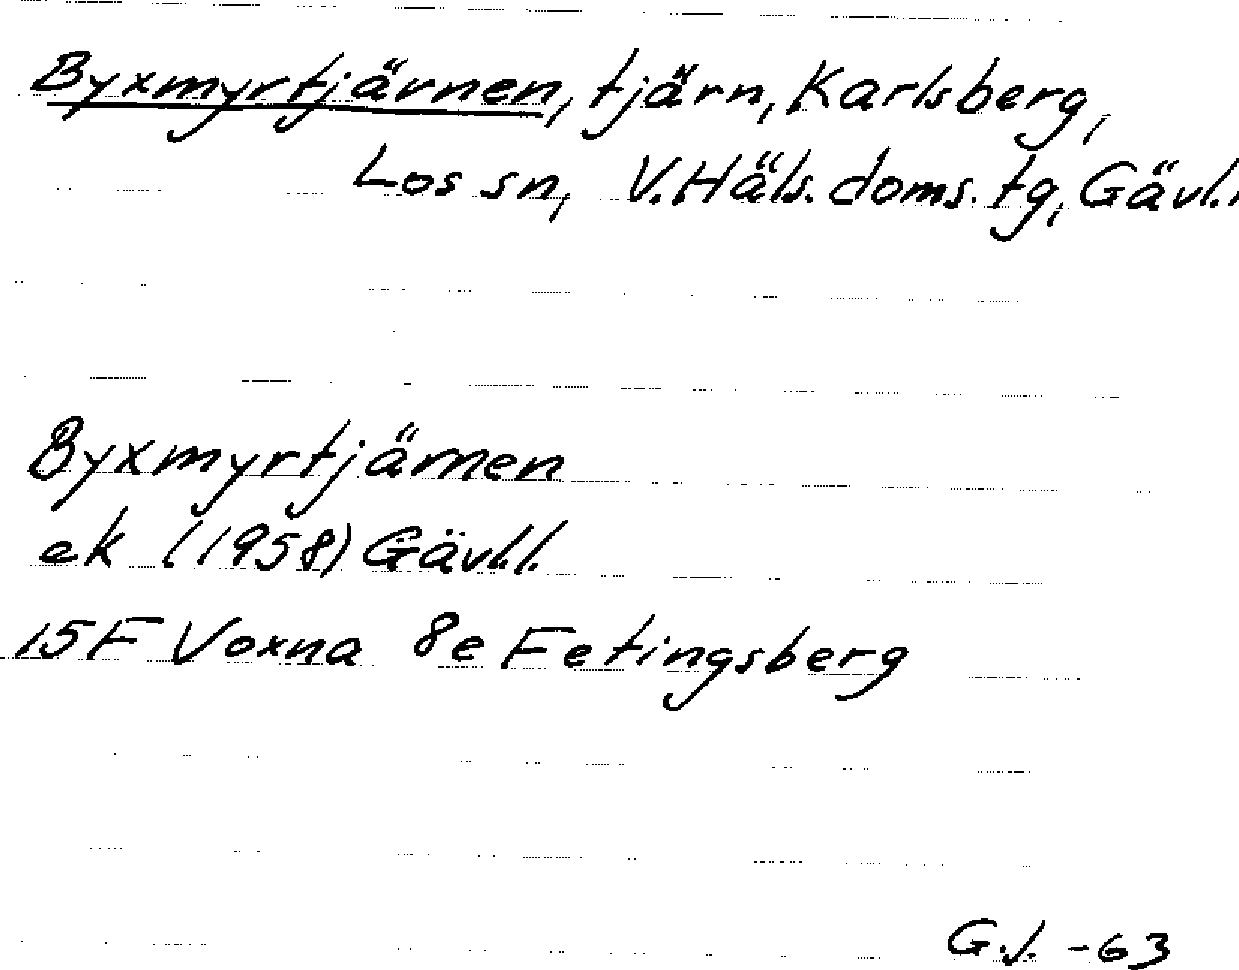 Byxmyrtjärnen, tjärn, Karlsberg,
Los sn, V.Häls. doms. tg, Gävl.
Byxmyrtjärnen
ek (1958) Gävl.l.
15F Voxna 8e Fetingsberg
G.J. -63